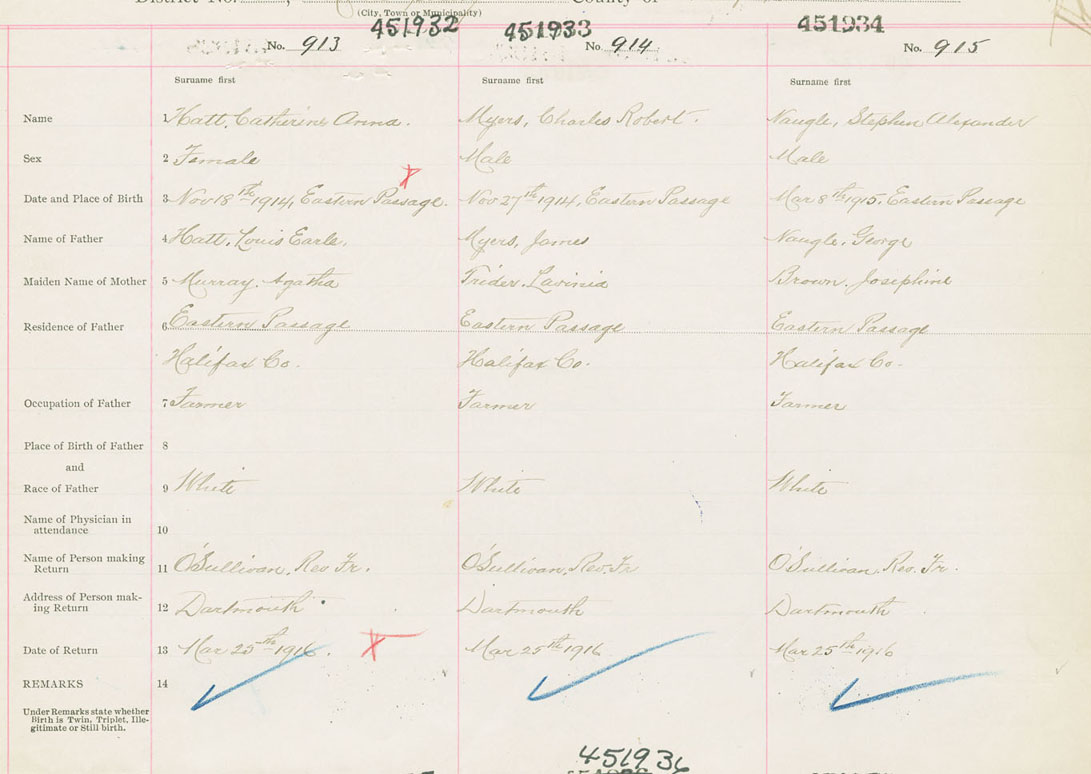 District No. , County of
(City, Town or Municipality)
451932 451933 451934
No. 913 No. 914 No. 915
Surname first Surname first Surname first
Name 1 Hatt, Catherine Anna. Myers, Charles Robert. Naugle, Stephen Alexander
Sex 2 Female Male Male
Date and Place of Birth 3 Nov 18th 1914, Eastern Passage. Nov 27th 1914, Eastern Passage Mar 8th 1915, Eastern Passage
Name of Father 4 Hatt, Louis Earle. Myers, James Naugle, George
Maiden Name of Mother 5 Murray, Agatha Trider, Lavinia Brown, Josephine
Residence of Father 6 Eastern Passage Eastern Passage Eastern Passage
Halifax Co. Halifax Co. Halifax Co.
Occupation of Father 7 Farmer Farmer Farmer
Place of Birth of Father 8
and
Race of Father 9 White White White
Name of Physician in
attendance 10
Name of Person making
Return 11 O'Sullivan, Rev. Fr. O'Sullivan, Rev. Fr O'Sullivan, Rev. Fr.
Address of Person mak-
ing Return 12 Dartmouth Dartmouth Dartmouth
Date of Return 13 Mar 25th 1916. Mar 25th 1916 Mar 25th 1916
REMARKS 14
Under Remarks state whether
Birth is Twin, Triplet, Ille-
gitimate or Still birth.
451936